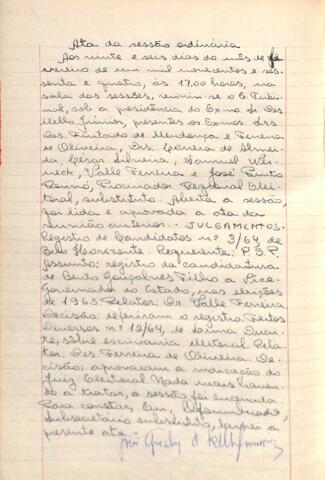 Ata da sessão ordinária
Aos vinte e seis dias do mês de fe
vereiro de um mil novecentos e ses
senta e quatro, às 17,00 horas, na
sala das sessões, reuniu-se o E. Tribu
nal, sob a presidência do Exmo. Sr. Des.
Mello Júnior, presentes os Exmos. Srs.
Des. Furtado de Mendonça e Ferreira
de Oliveira, Drs. Correia de Almei
da, César Silveira, Samuel Wer
neck, Valle Ferreira e José Pinto
Renó, Procurador Regional Elei
toral, substituto. Aberta a sessão,
foi lida e aprovada a ata da
reunião anterior. - JULGAMENTOS:
Registro de Candidatos nº 3/64, de
Belo Horizonte. Requerente: P.S.P.
Assunto: registro da candidatura
de Bento Gonçalves Filho a Vice-
Governador do Estado, nas eleições
de 1965. Relator: Dr. Valle Ferreira
Decisão: deferiram o registro. Feitos
Diversos nº 12/64, de Lima Duar
te, sobre escrivania eleitoral. Rela
tor: Des. Ferreira de Oliveira. De
cisão: aprovaram a indicação do
Juiz Eleitoral. Nada mais haven
do a tratar, a sessão foi encerrada.
Para constar, Eu,
Subsecretário substituto, lavrei a
presente ata.